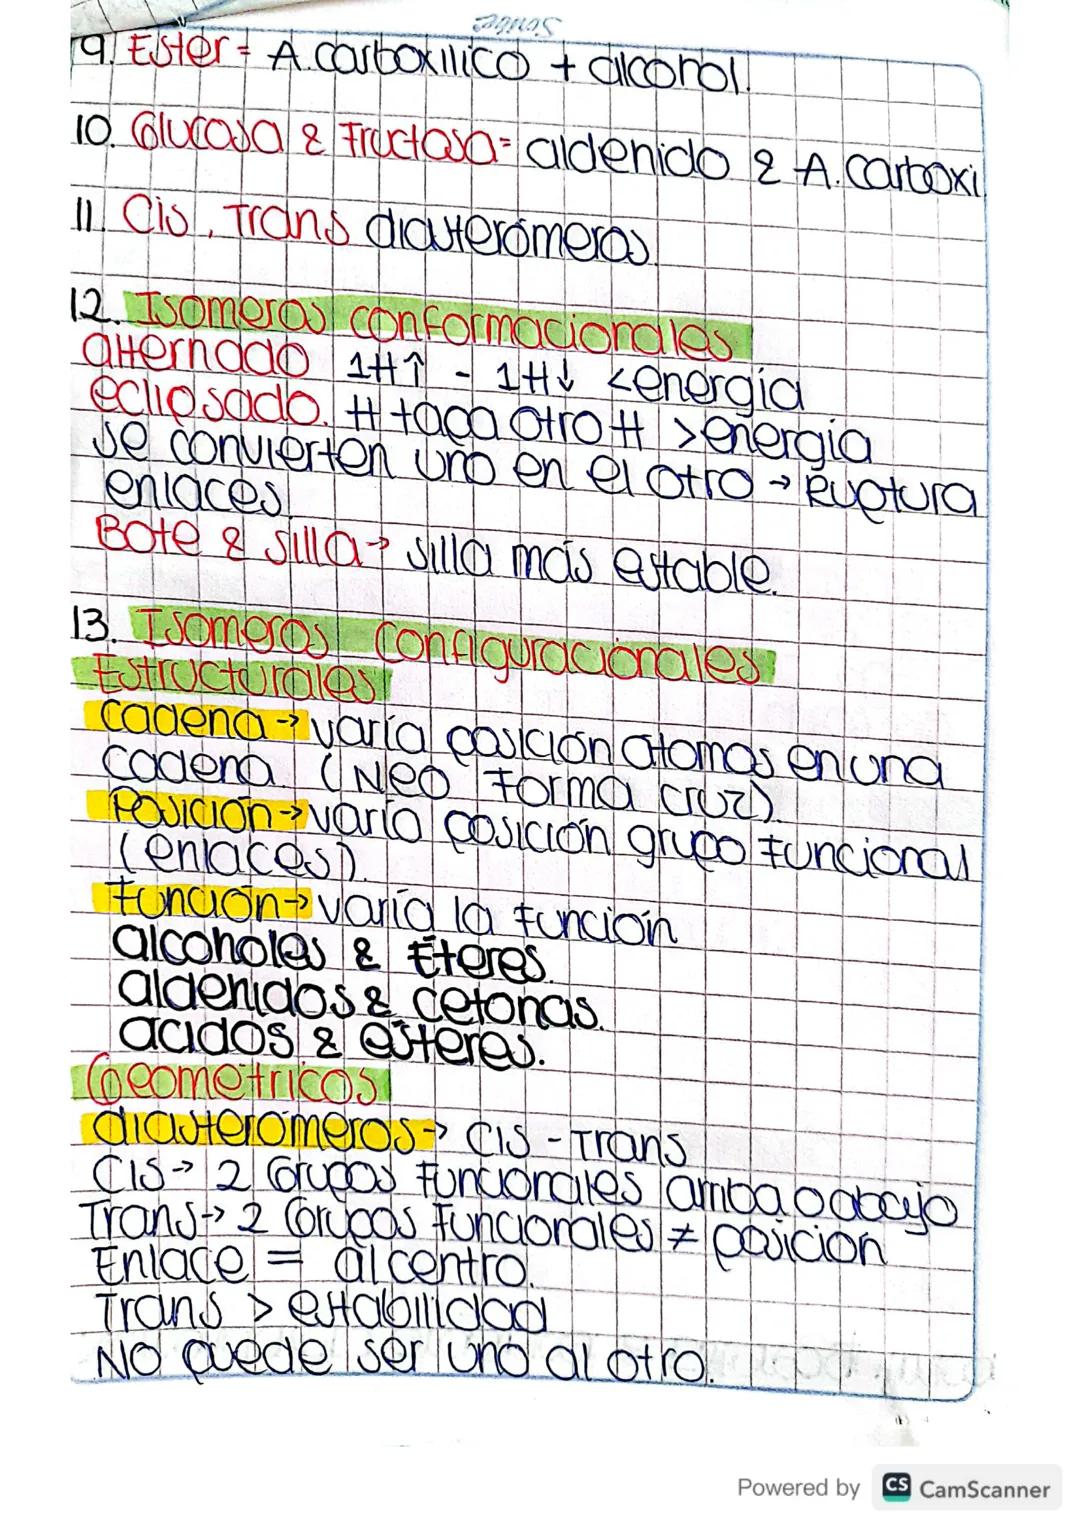 9. Ester = A.carboxilico + alcohol.
10. Glucosa & Fructosa = aldehido & A. carboxi
11. Cis, Trans diasterómeros.
12. Isomeros conformacionales
alternado 1H↑ - 1H↓ <energía
eclipsado. H tapa otro H >energía
se convierten uno en el otro → Ruptura
enlaces.
Bote & Silla → silla más estable.
13. Isomeros configuracionales
Estructurales
cadena → varía posición atomos en una
cadena. (Neo Forma cruz).
Posición → varía posición grupo funcional
(enlaces).
Función → varía la función
alcoholes & Éteres.
aldehidos & cetonas.
acidos & ésteres.
Geometricos
diasterómeros → Cis - Trans
Cis → 2 Grupos funcionales arriba o abajo
Trans → 2 Grupos funcionales ≠ posición
Enlace = al centro.
Trans > estabilidad
No puede ser uno al otro.
Powered by CS CamScanner